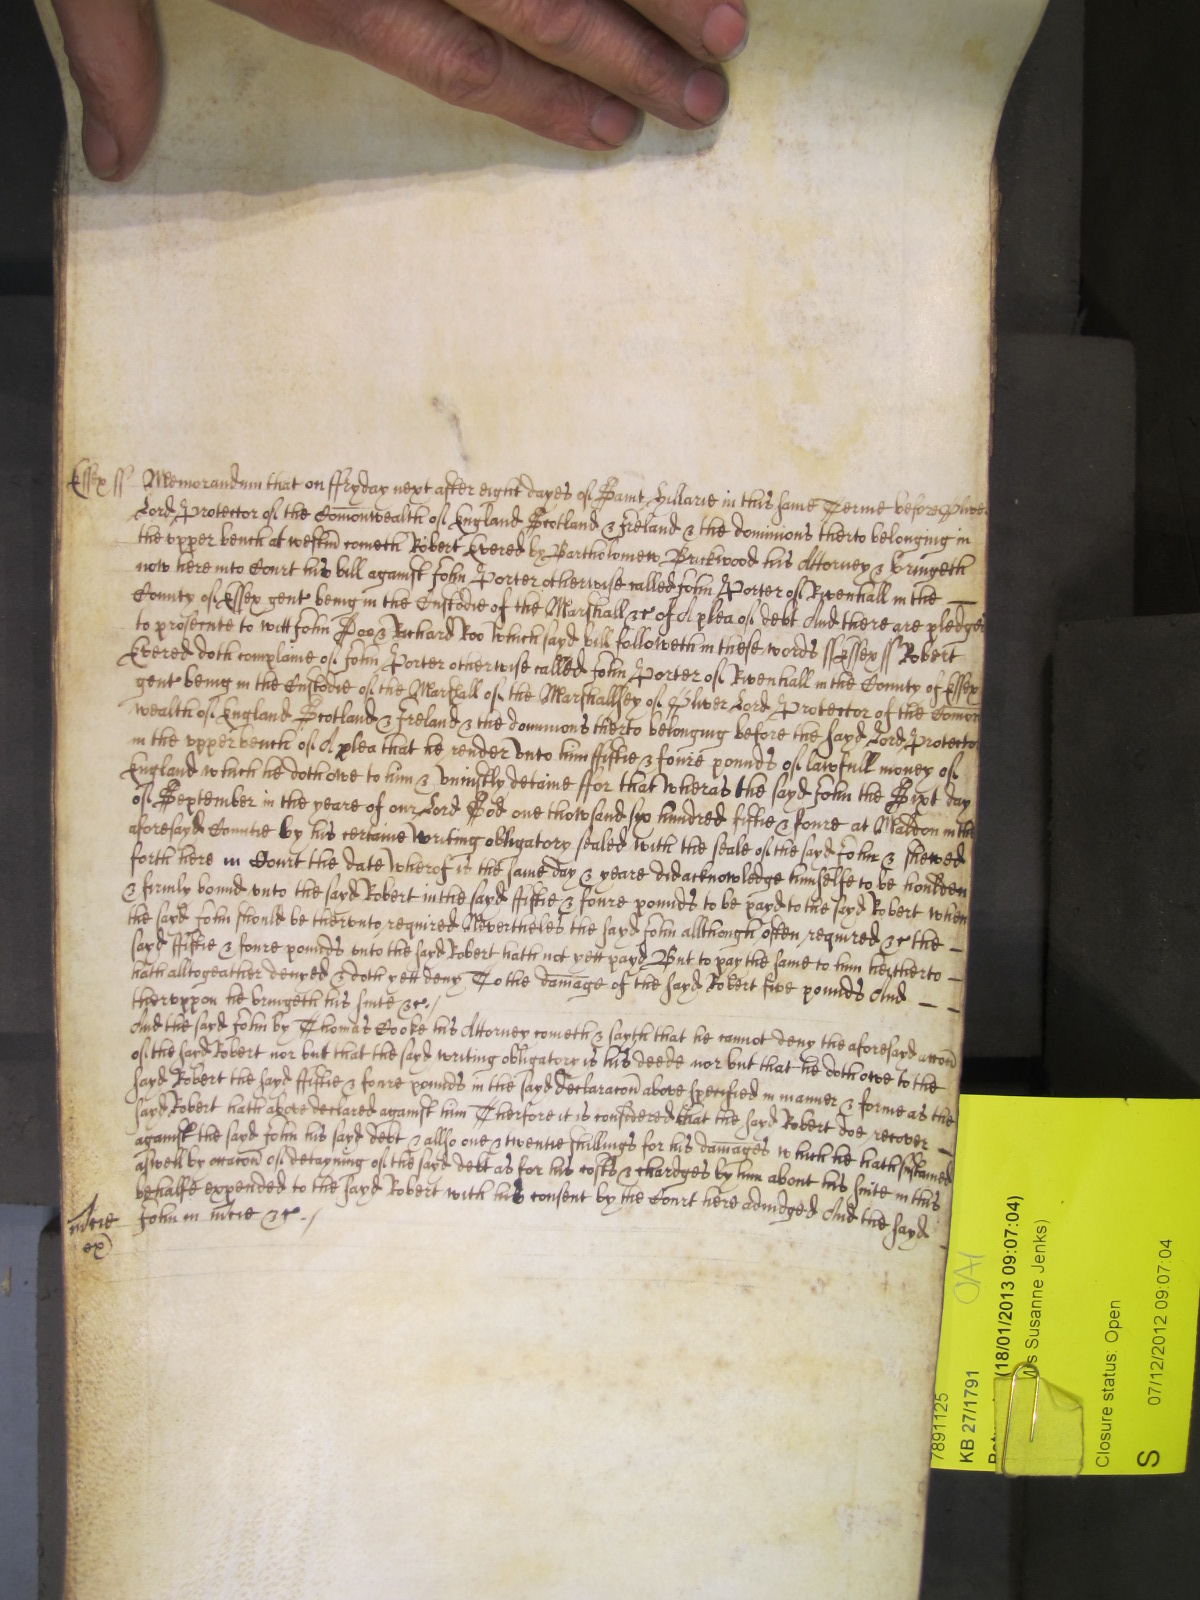 Essex ss Memorandum that on ffryday next after eight dayes of Saint Hillarie in this same Terme before Oliver
Lord Protector of the Com̄onwealth of England Scotland & Ireland & the dominions therto belonging in
the vpper bench at westm̄ cometh Robert Evered by Bartholomew Brickwood his Attorney & bringeth
now here into Court his bill against John Porter otherwise called John Porter of Rivenhall in the
County of Essex gent being in the Custodie of the Marshall &c of A plea of debt And there are pledges
to prosecute to witt John Doo & Richard Roo Which sayd bill followeth in these words ss Essex ss Robert
Evered doth complaine of John Porter otherwise called John Porter of Rivenhall in the County of Essex
gent being in the Custodie of the Marshall of the Marshallsey of Oliver Lord Protector of the Com̄on
wealth of England Scotland & Ireland & the dominions therto belonging before the sayd Lord Protector
in the vpper bench of A plea that he render vnto him ffiftie & foure pounds of lawfull money of
England which he doth owe to him & vniustly detaine ffor that Wheras the sayd John the Sixt day
of September in the yeare of our Lord God one thowsand six hundred fiftie & foure at Maldon in the
aforesayd Countie by his certaine Writing obligatory sealed with the seale of the sayd John & shewed
forth here in Court the date Wherof is the same day & yeare did acknowledge himselfe to be houlden
& firmly bound vnto the sayd Robert in the sayd ffiftie & foure pounds to be payd to the sayd Robert When
the sayd John should be thervnto required Nevertheles the sayd John allthough often required &c the
sayd ffiftie & foure pounds vnto the sayd Robert hath not yett payd But to pay the same to him heitherto
hath alltogeather denyed & doth yett deny To the damage of the sayd Robert five pounds And
thervppon he bringeth his suite &c./
And the sayd John by Thomas Cooke his Attorney cometh & sayth that he cannot deny the aforesayd acc̄on
of the sayd Robert nor but that the sayd writing obligatory is his deede nor but that he doth owe to the
sayd Robert the sayd ffiftie & foure pounds in the sayd declarac̄on above specified in manner & forme as the
sayd Robert hath above declared against him Therfore it is considered that the sayd Robert doe recover
against the sayd John his sayd debt & allso one & twentie shillings for his damages which he hath susteined
aswell by occac̄on of detayning of the sayd debt as for his costs & chardges by him about his suite in this
behalfe expended to the sayd Robert with his consent by the Court here adiudged And the sayd
John in m̄cie &c./
m̄cie
ex)
7891125
KB 27/1791
(18/01/2013 09:07:04)
Ms Susanne Jenks)
Closure status: Open
S 07/12/2012 09:07:04